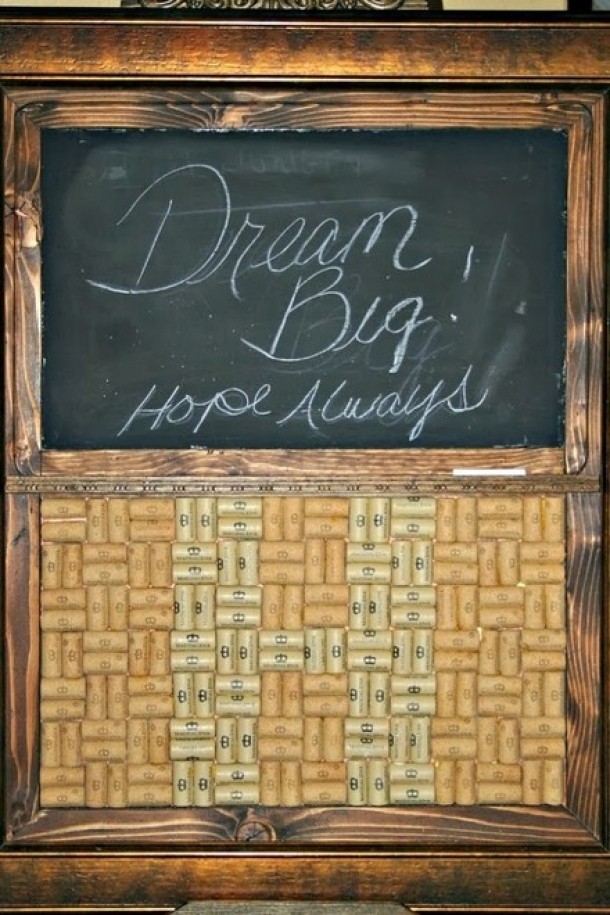 Dream
Big!
Hope Always